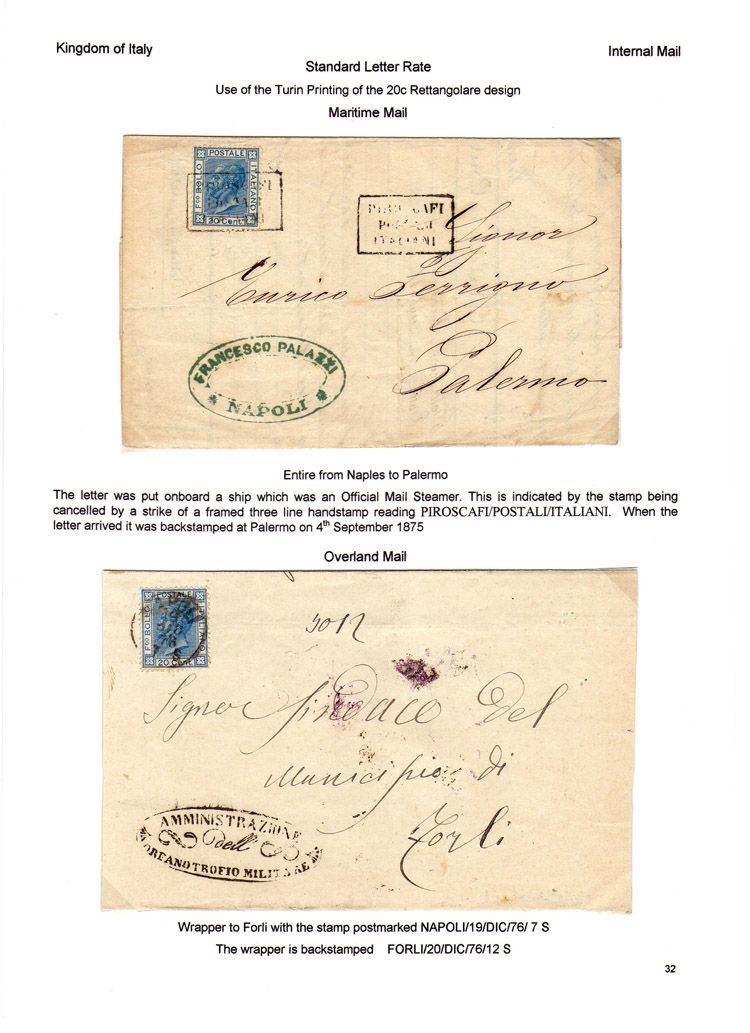 Kingdom of Italy
Internal Mail
Standard Letter Rate
Use of the Turin Printing of the 20c Rettangolare design
Maritime Mail
POSTALE
Fco BOLLO
ITALIANO
20 Cent.
PIROSCAFI
POSTALI
ITALIANI
Signor
Enrico Ferrigno
Palermo
FRANCESCO PALAZZI
NAPOLI
Entire from Naples to Palermo
The letter was put onboard a ship which was an Official Mail Steamer. This is indicated by the stamp being
cancelled by a strike of a framed three line handstamp reading PIROSCAFI/POSTALI/ITALIANI. When the
letter arrived it was backstamped at Palermo on 4th September 1875
Overland Mail
POSTALE
Fco BOLLO
ITALIANO
20 Cent
Signor Sindaco del
Municipio di
Forli
AMMINISTRAZIONE
dell'
ORFANOTROFIO MILITARE
Wrapper to Forli with the stamp postmarked NAPOLI/19/DIC/76/ 7 S
The wrapper is backstamped FORLI/20/DIC/76/12 S
32